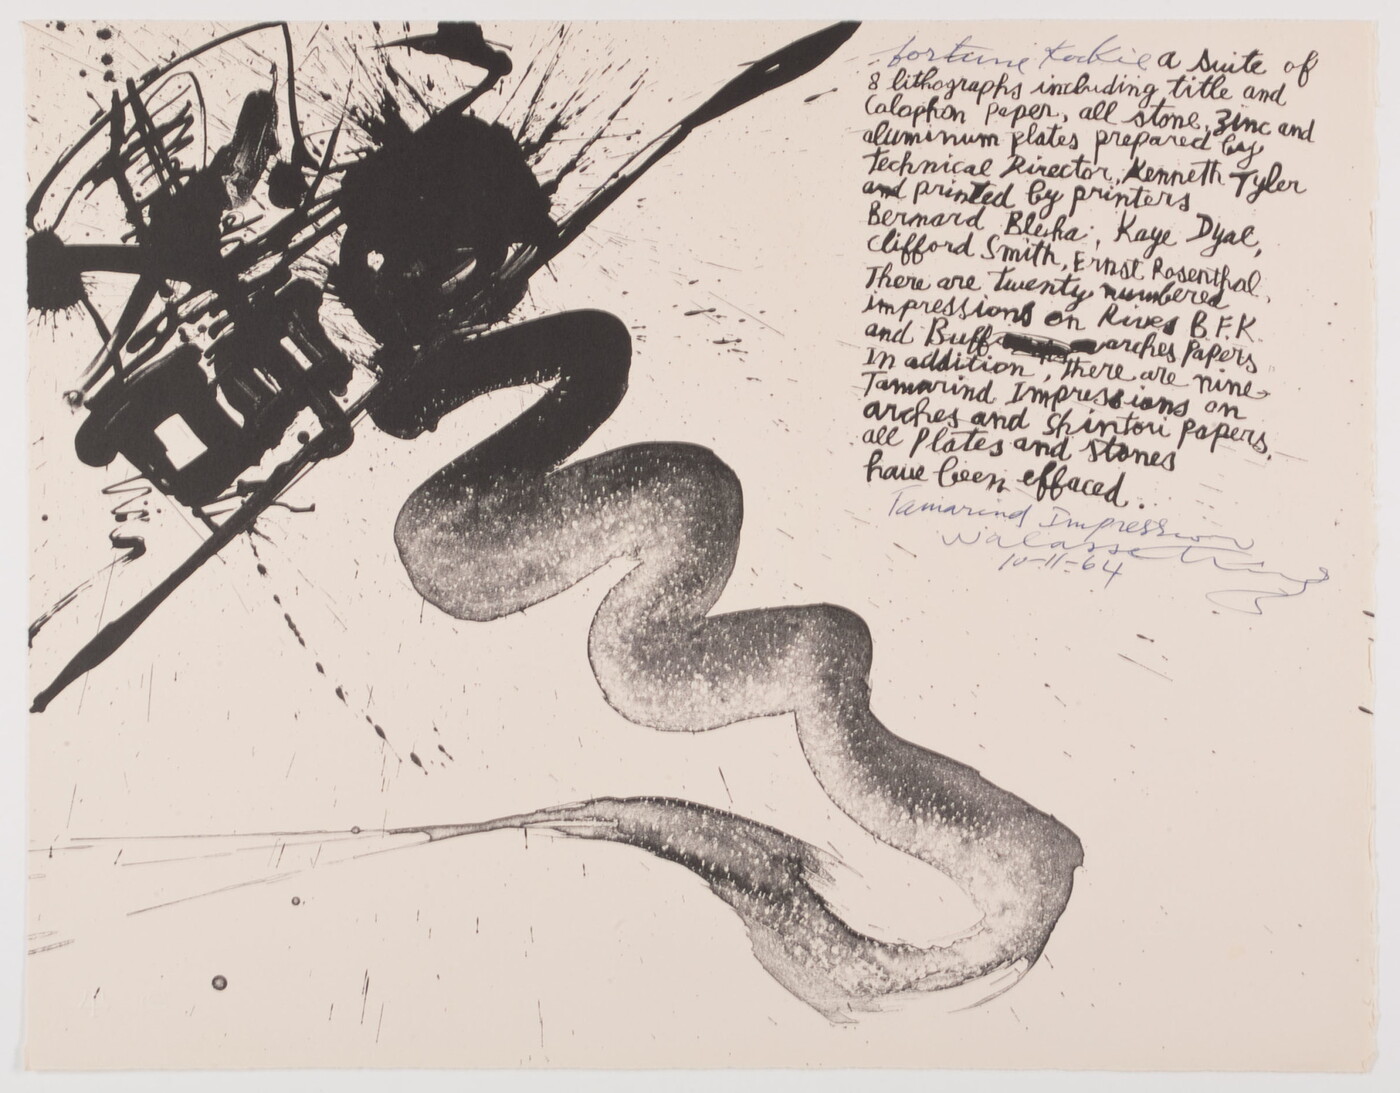 fortune kookie a suite of
8 lithographs including title and
Colophon paper, all stone, zinc and
aluminum plates prepared by
Technical Director, Kenneth Tyler
and printed by printers
Bernard Bleha, Kaye Dyal,
Clifford Smith, Ernst Rosenthal.
There are twenty numbered
impressions on Rives B.F.K.
and Buff arches Papers
In addition, there are nine
Tamarind Impressions on
arches and Shintori papers,
all Plates and stones
have been effaced.
Tamarind Impression
Walasse Ting
10-11-64